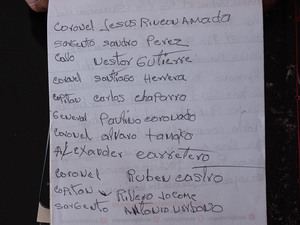 Coronel Jesus Rincon Amado
Sargento Sandro Perez
Cabo Nestor Gutierre
Coronel Santiago Herrera
Capitan Carlos Chaparro
General Paulino Coronado
Coronel Alvaro Tamayo
Alexander Carretero
Coronel Ruben Castro
Capitan Rivero Jacome
Sargento Antonio Urbano